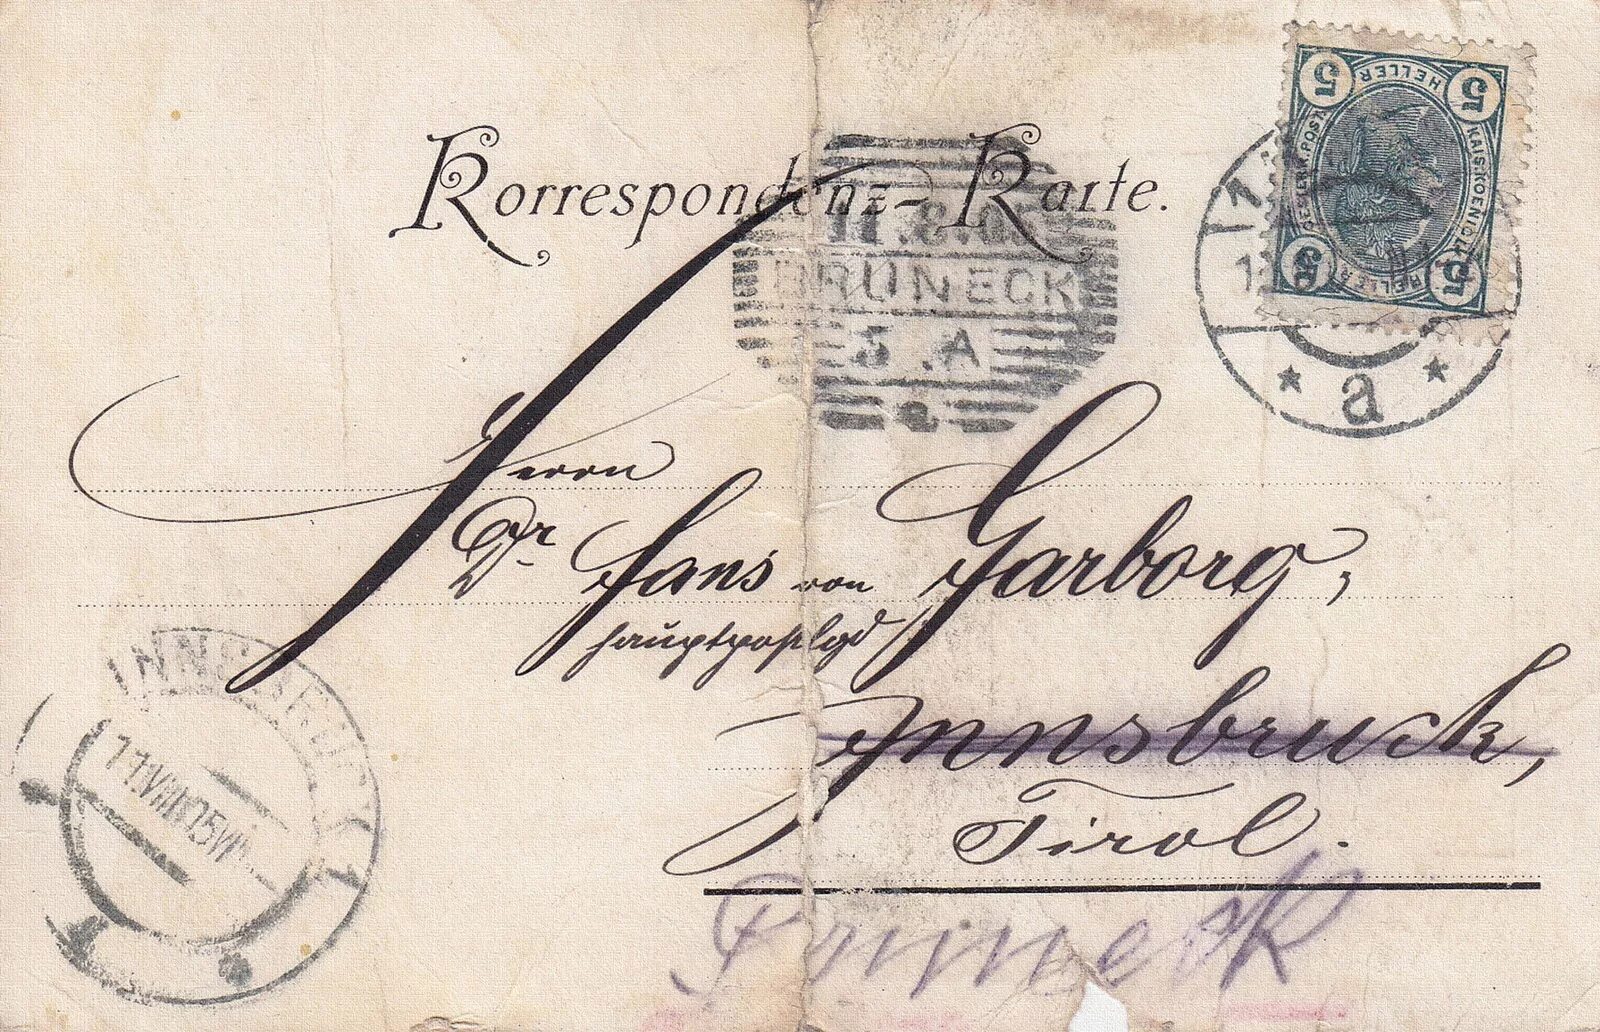 Korrespondenz-Karte.
5 HELLER 5
KAIS.KÖNIGL.
OESTERR.POST
5 HELLER 5
BRUNECK
5 .A
a
* a *
Herrn
Dr. Hans von Garborg,
hauptpostlgd
Innsbruck,
Tirol.
INNSBRUCK 1
Bruneck